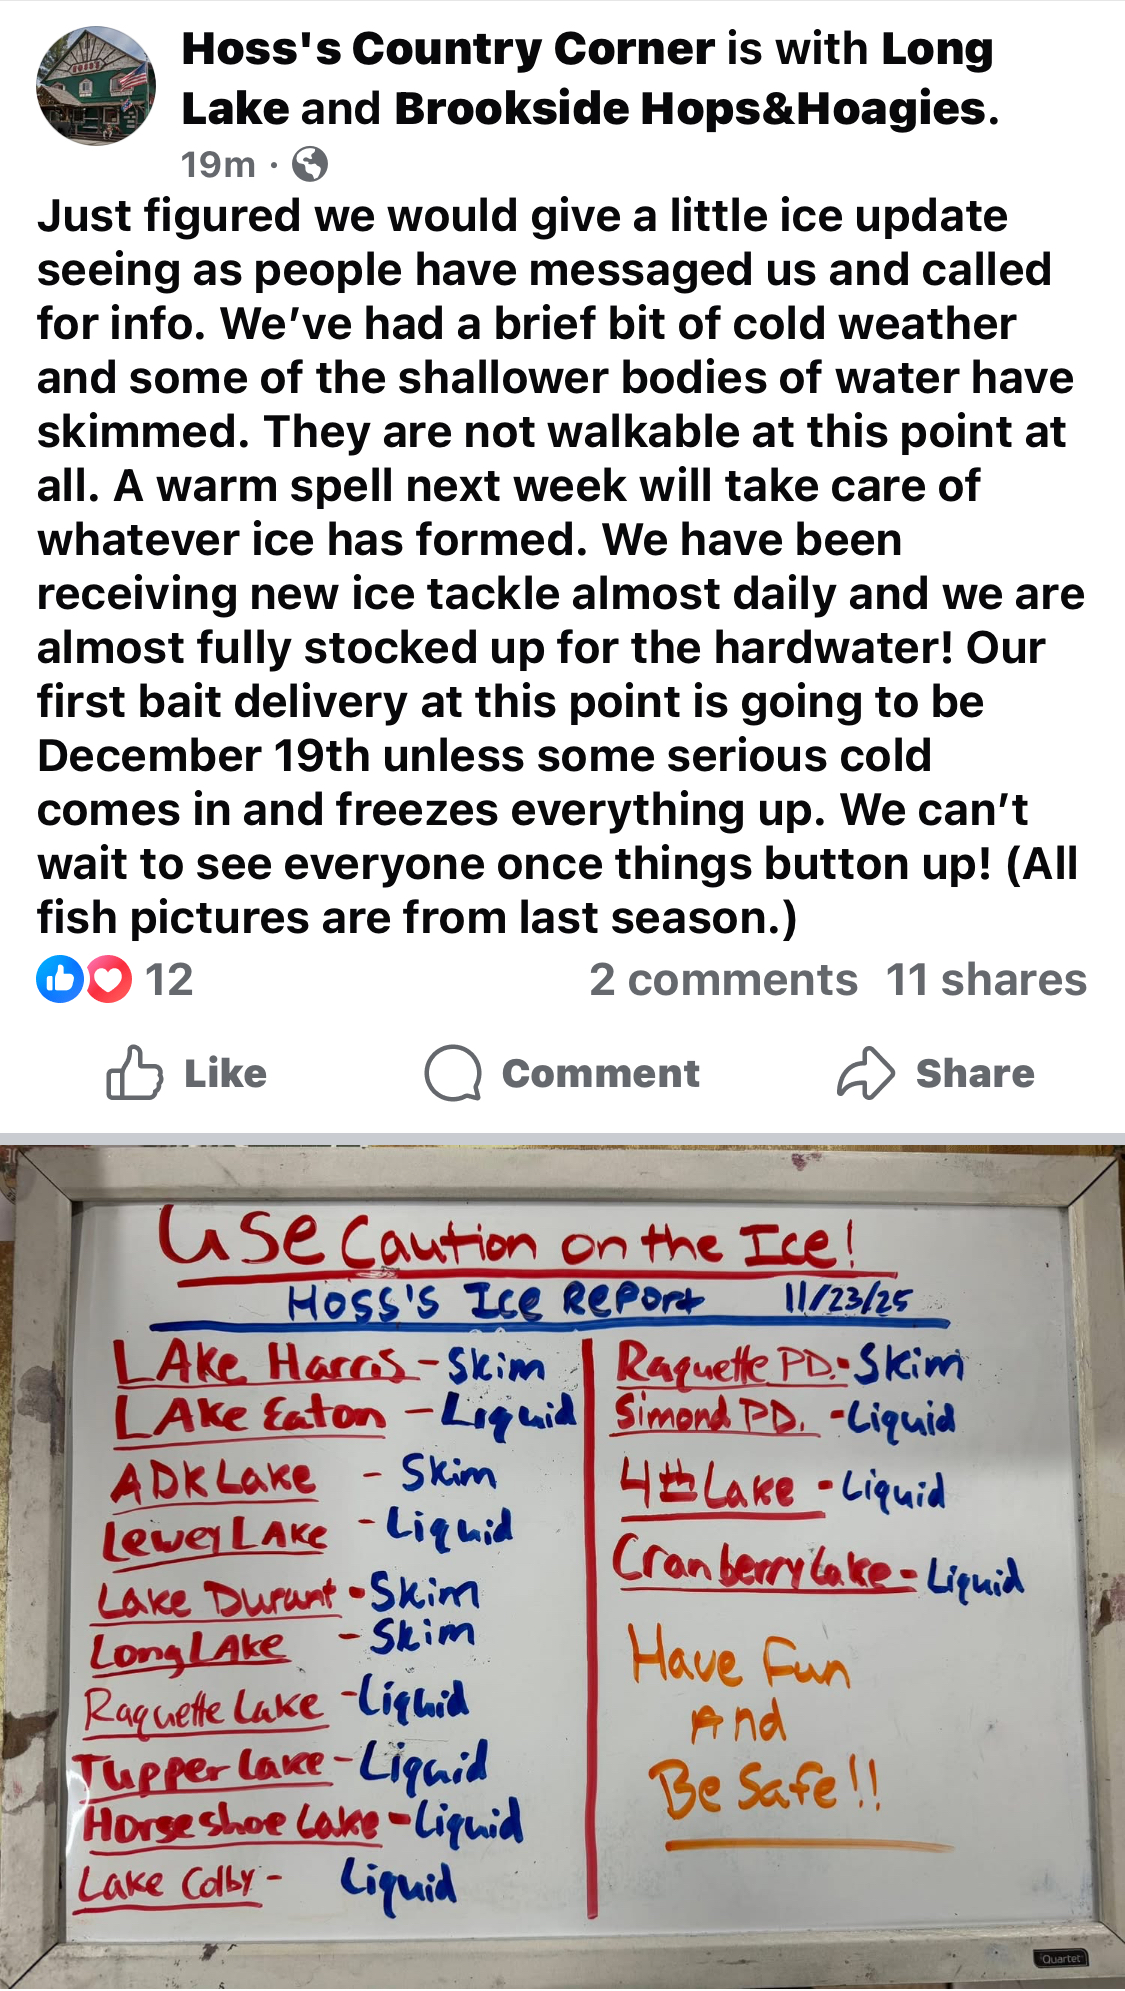 Hoss's Country Corner is with Long
Lake and Brookside Hops&Hoagies.
19m ·
Just figured we would give a little ice update
seeing as people have messaged us and called
for info. We’ve had a brief bit of cold weather
and some of the shallower bodies of water have
skimmed. They are not walkable at this point at
all. A warm spell next week will take care of
whatever ice has formed. We have been
receiving new ice tackle almost daily and we are
almost fully stocked up for the hardwater! Our
first bait delivery at this point is going to be
December 19th unless some serious cold
comes in and freezes everything up. We can’t
wait to see everyone once things button up! (All
fish pictures are from last season.)
12 2 comments 11 shares
Like Comment Share
Use Caution on the Ice!
Hoss's Ice Report 11/23/25
Lake Harris - Skim
Lake Eaton - Liquid
ADK Lake - Skim
Lewey Lake - Liquid
Lake Durant - Skim
Long Lake - Skim
Raquette Lake - Liquid
Tupper Lake - Liquid
Horseshoe Lake - Liquid
Lake Colby - Liquid
Raquette PD. - Skim
Simond PD. - Liquid
4th Lake - Liquid
Cranberry Lake - Liquid
Have Fun
And
Be Safe!!
Quartet